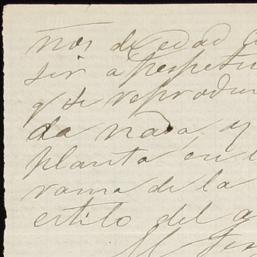 nos de edad
sir a perpetu
q. se reprodu
da nada. y
planta en l
rama de la
estilo del q